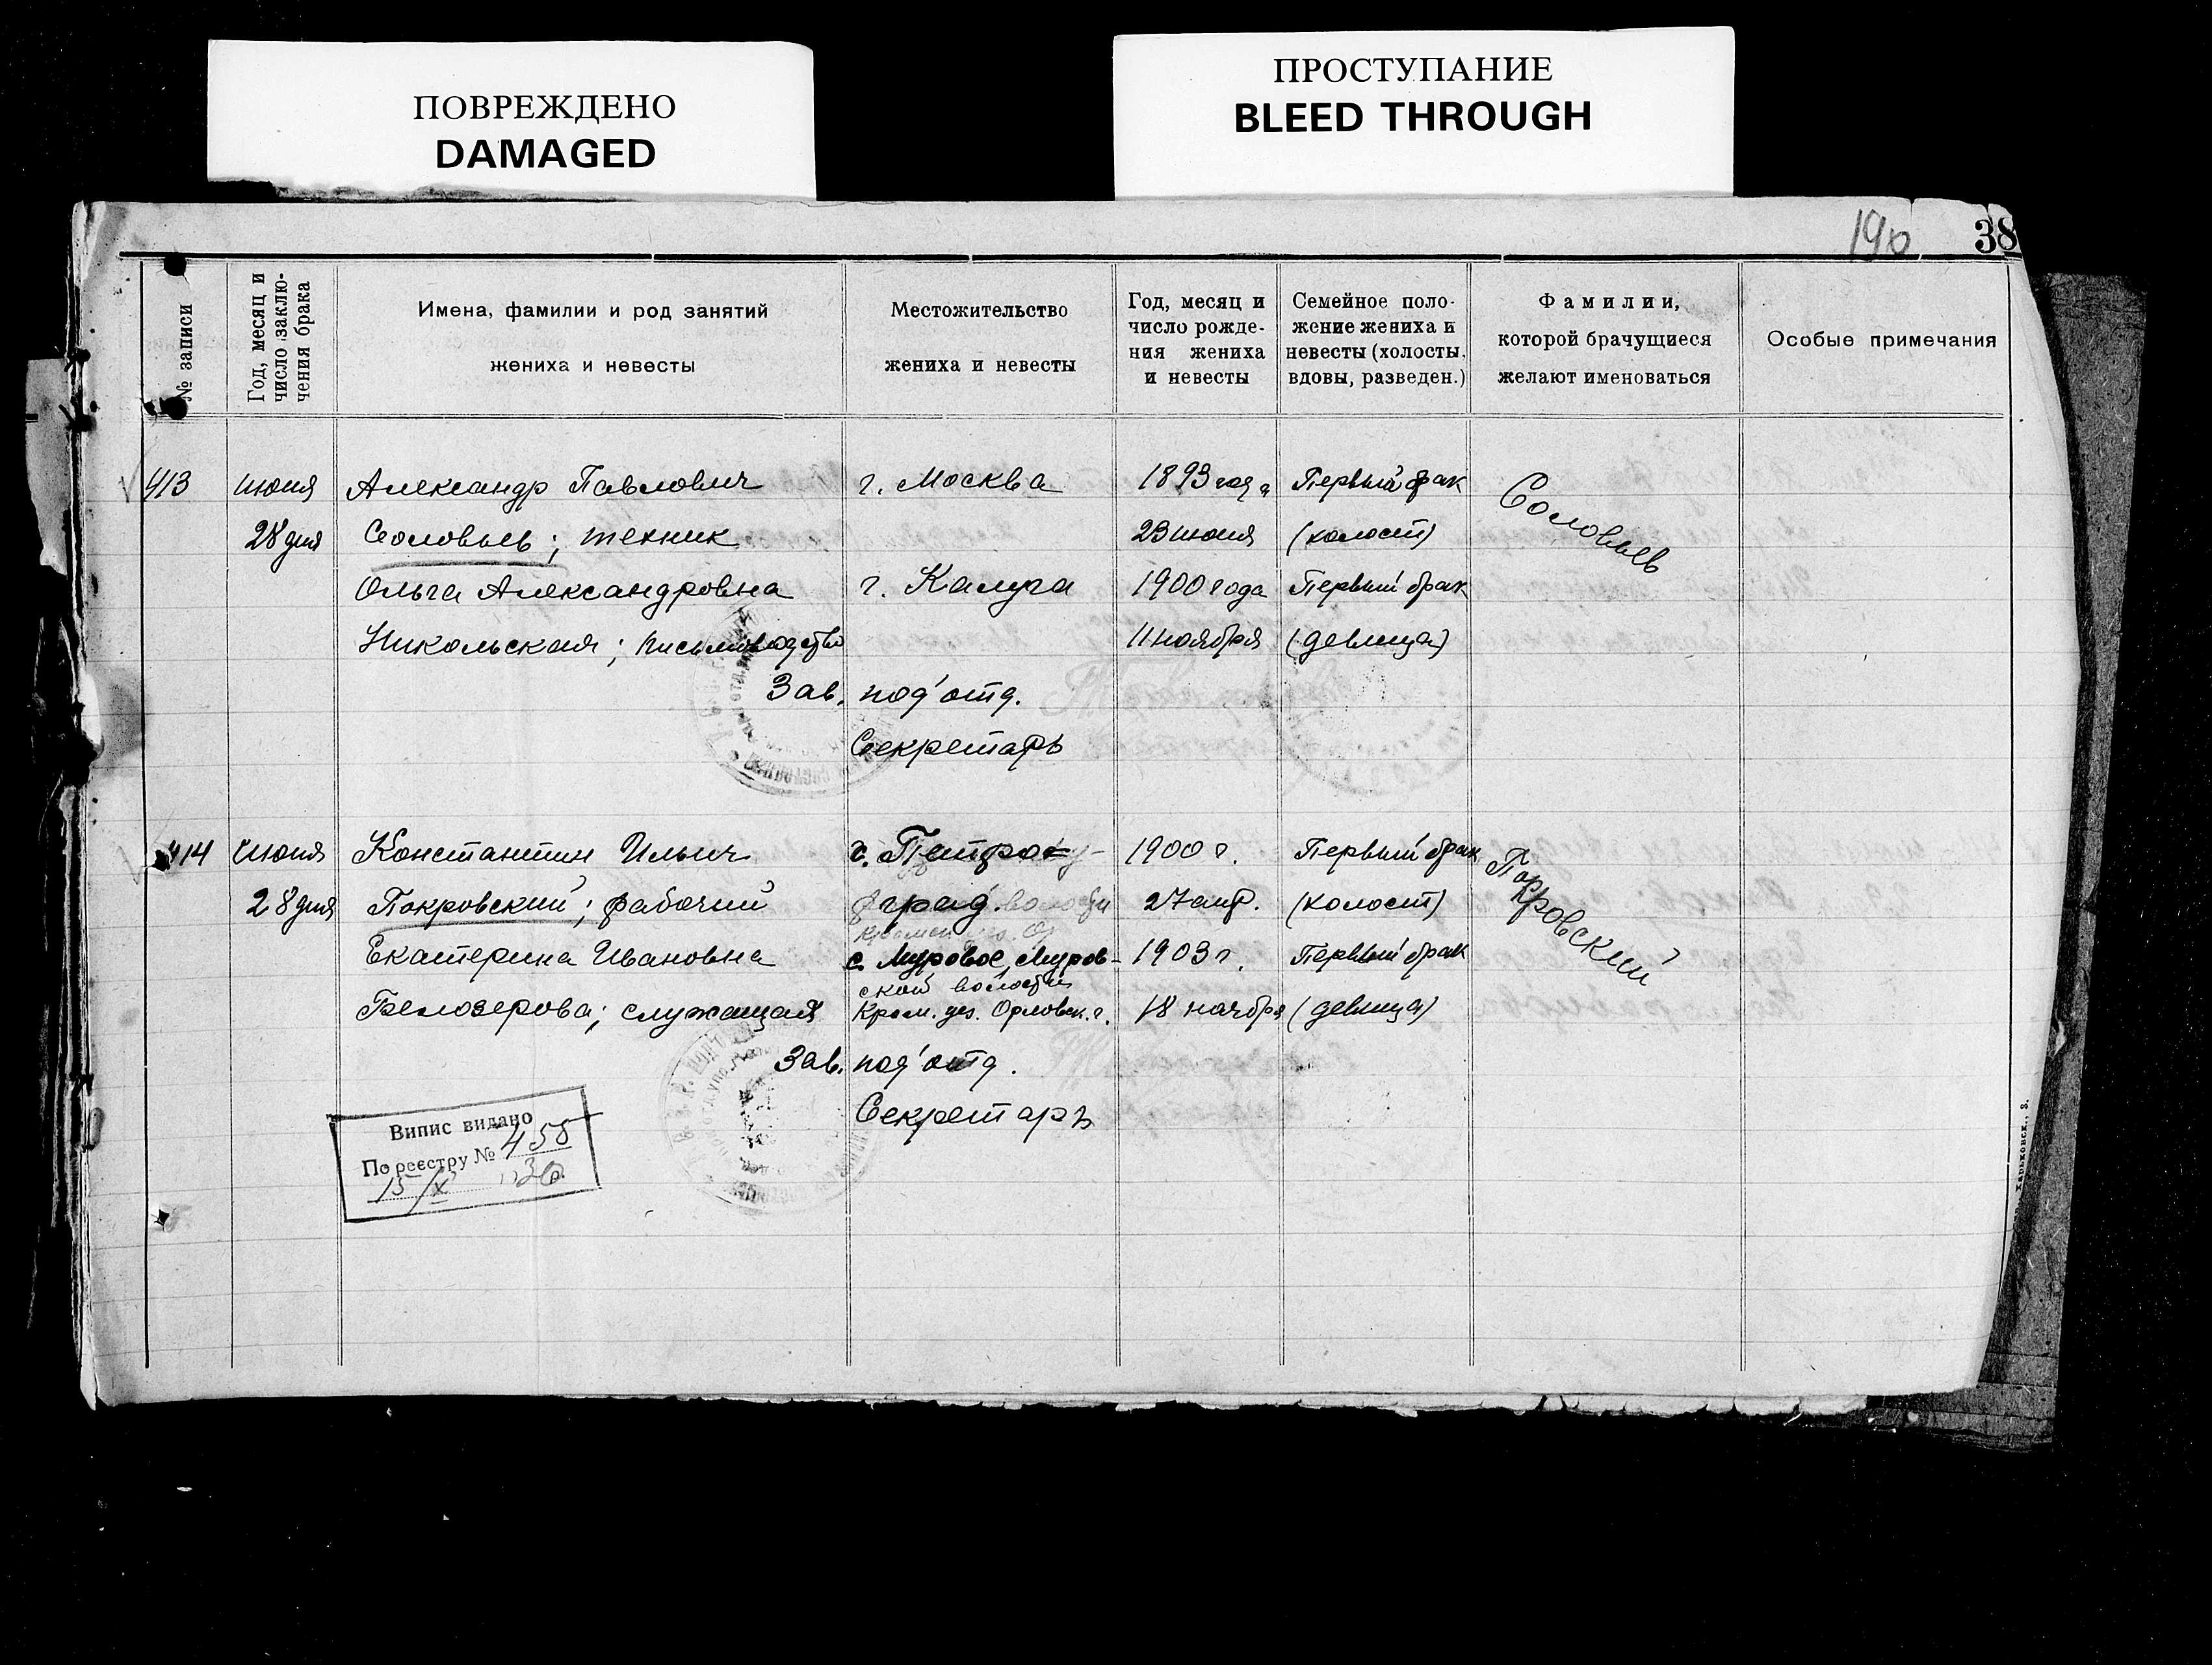 ПОВРЕЖДЕНО
DAMAGED
ПРОСТУПАНИЕ
BLEED THROUGH
190 38
№ записи
Год, месяц и
число заклю-
чения брака
Имена, фамилии и род занятий
жениха и невесты
Местожительство
жениха и невесты
Год, месяц и
число рожде-
ния жениха
и невесты
Семейное поло-
жение жениха и
невесты (холосты,
вдовы, разведен.)
Фамилии,
которой брачущиеся
желают именоваться
Особые примечания
413 июня Александр Павлович г. Москва 1893 года Первый брак Соловьев
28 дня Соловьев; техник 23 июня (холост)
Ольга Александровна г. Калуга 1900 года Первый брак
Никольская; письмоводство 11 ноября (девица)
Зав. под'отд.
Секретарь
414 июня Константин Ильич г. Петро- 1900 г. Первый брак Покровский
28 дня Покровский; рабочий град. волости 27 апр. (холост)
Екатерина Ивановна с. Муровое, Муров- 1903 г. Первый брак
ской волости
Белозерова; служащая Кром. уез. Орловск. г. 18 ноября (девица)
Зав. под'отд.
Секретарь
Випис видано
По реестру № 458
15/IX 36
Харьковск., З.